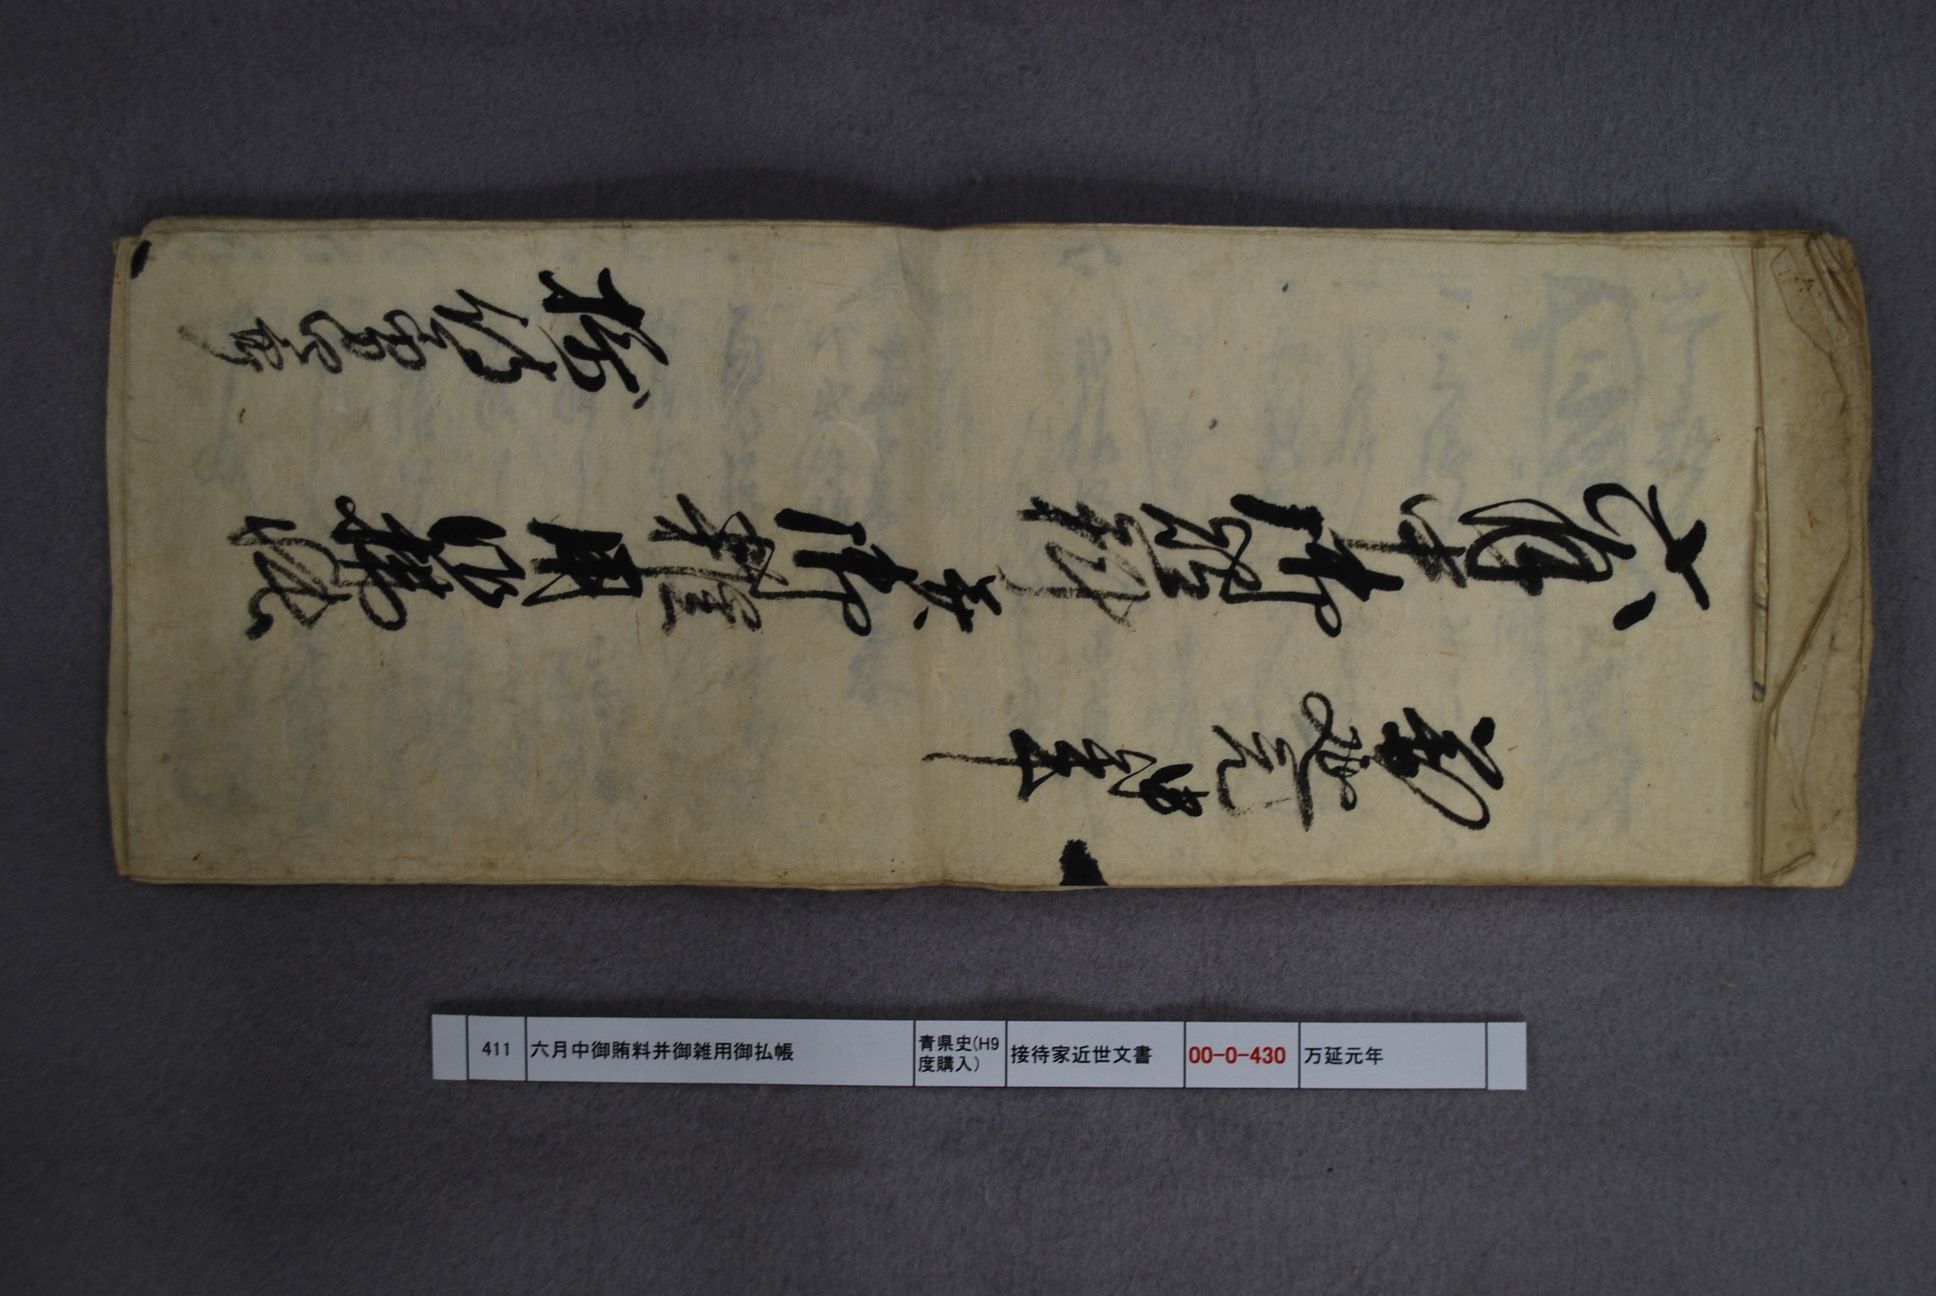 萬延元申年
六月中御賄料并御雑用御拂帳
接待
411 六月中御賄料并御雑用御払帳 青県史(H9度購入) 接待家近世文書 00-0-430 万延元年